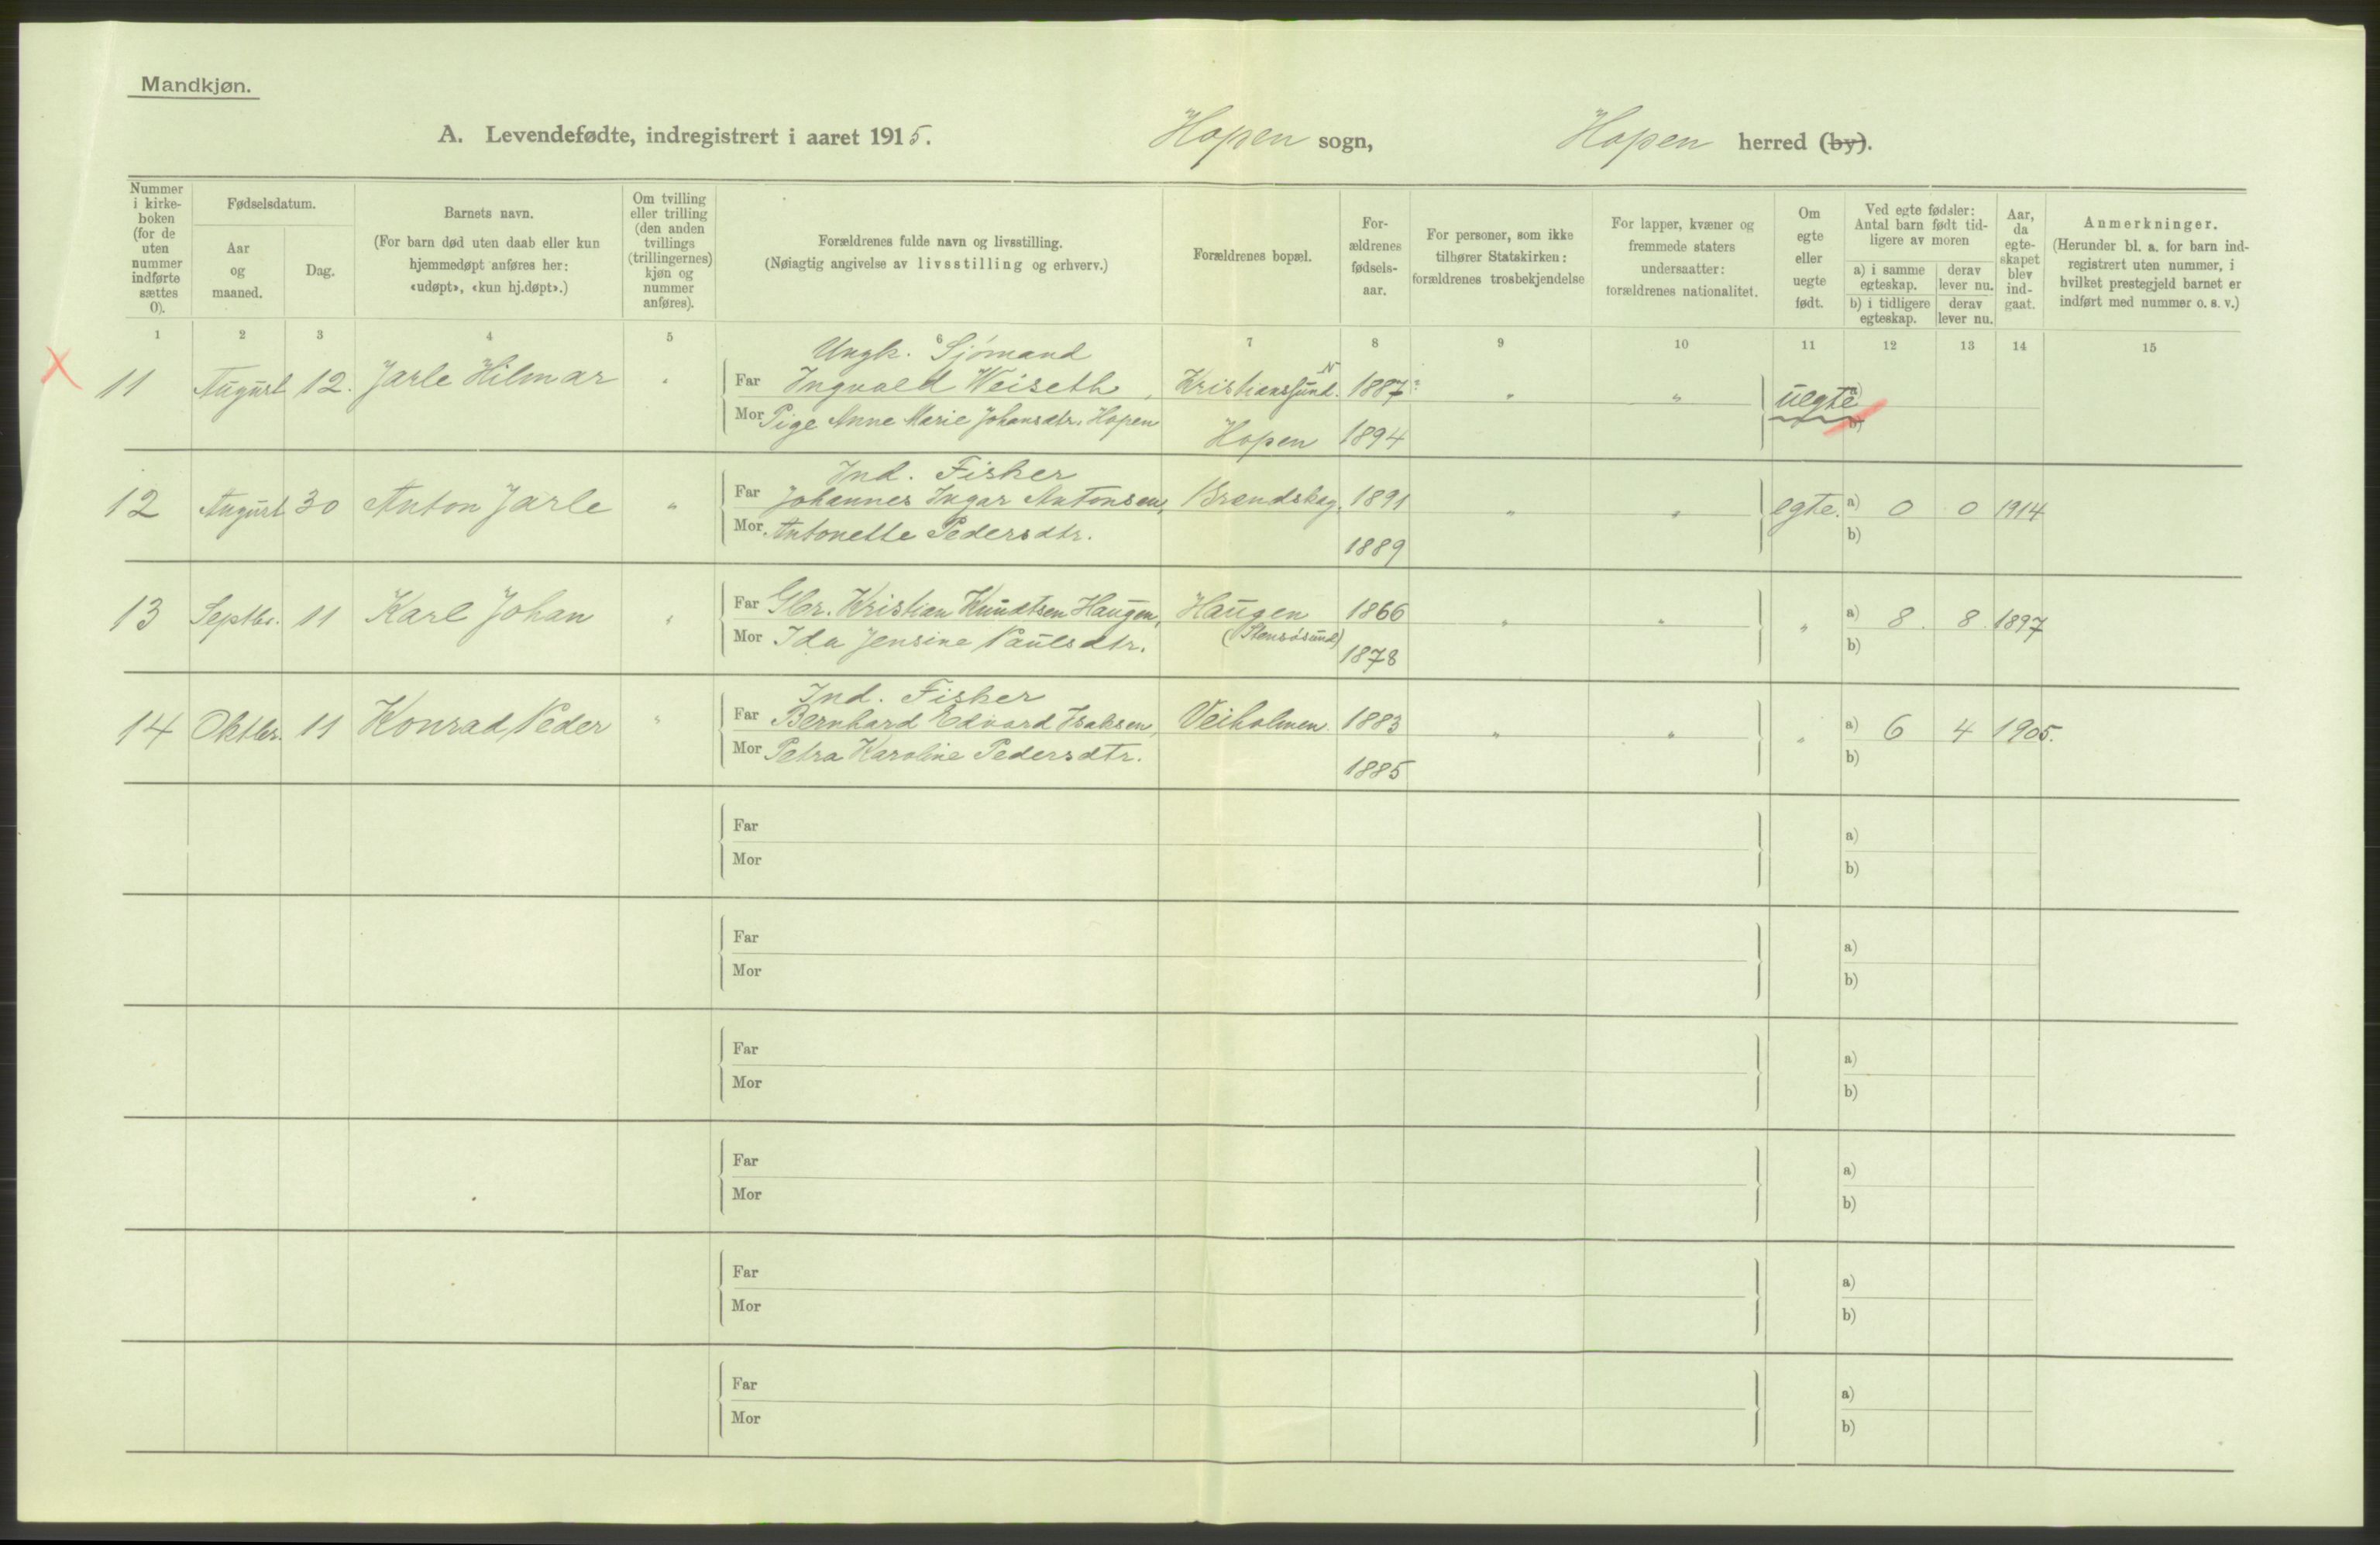 Mandkjøn.
A. Levendefødte, indregistrert i aaret 1915. Hopen sogn, Hopen herred (by).
Nummer i kirke-boken (for de uten nummer indførte sættes 0).
Fødselsdatum.
Aar og maaned.
Dag.
Barnets navn.
(For barn død uten daab eller kun hjemmedøpt anføres her: «udøpt», «kun hj.døpt».)
Om tvilling eller trilling (den anden tvillings (trillingernes) kjøn og nummer anføres).
Forældrenes fulde navn og livsstilling.
(Nøiagtig angivelse av livsstilling og erhverv.)
Forældrenes bopæl.
For-ældrenes fødsels-aar.
For personer, som ikke tilhører Statskirken: forældrenes trosbekjendelse
For lapper, kvæner og fremmede staters undersaatter: forældrenes nationalitet.
Om egte eller uegte født.
Ved egte fødsler: Antal barn født tid-ligere av moren
a) i samme egteskap. derav lever nu.
b) i tidligere egteskap. derav lever nu.
Aar, da egte-skapet blev ind-gaat.
Anmerkninger.
(Herunder bl. a. for barn ind-registrert uten nummer, i hvilket prestegjeld barnet er indført med nummer o. s. v.)
1 2 3 4 5 6 7 8 9 10 11 12 13 14 15
Ungk. Sjømand
X 11 August 12. Jarle Hilmar " Far Ingvald Weiseth, Kristianssund N. 1887 " " uegte a)
Mor Pige Anne Marie Johansdtr. Hopen Hopen 1894 b)
Ind. Fisker
12 August 30 Anton Jarle " Far Johannes Ingar Antonsen, Brændskag. 1891 " " egte. a) 0 0 1914
Mor Antonette Pedersdtr. 1889 b)
13 Septbr. 11 Karl Johan " Far Gbr. Kristian Knudtsen Haugen, Haugen 1866 " " " a) 8. 8. 1897
Mor Ida Jensine Paulsdtr. (Stensøsund) 1878 b)
Ind. Fisker
14 Oktbr. 11 Konrad Peder " Far Bernhard Edvard Isaksen, Veiholmen. 1883 " " " a) 6 4 1905.
Mor Petra Karoline Pedersdtr. 1885 b)
Far a)
Mor b)
Far a)
Mor b)
Far a)
Mor b)
Far a)
Mor b)
Far a)
Mor b)
Far a)
Mor b)